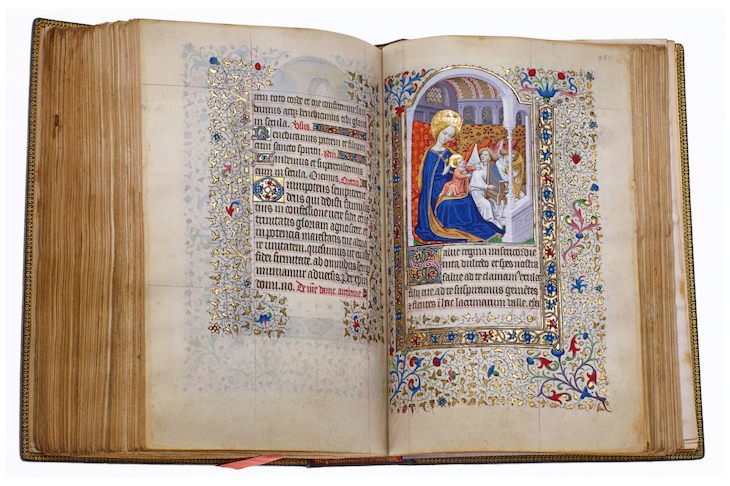 toto corde et ore confitemur lau
damus atqz benedicimus tibi gloria
in secula.
Benedicamus patrem et filium
cum sancto spiritu.
Laudemus et superexaltemus
eum in secula. Oremus.
Omnipotens sempiterne
deus qui dedisti famulis
tuis in confessione vere fidei
trinitatis gloriam agnoscere et
in potencia maiestatis tue adora
re unitatem. quesumus ut eius
fidei firmitate. ab omnibus semper
muniamur adversis. Per
domi. no. De
Salue regina misericordie
vita dulcedo et spes nostra
salue ad te clamam exules
filij eue ad te suspiramus gemētes
et flentes ī hac lacrimarum valle. eya